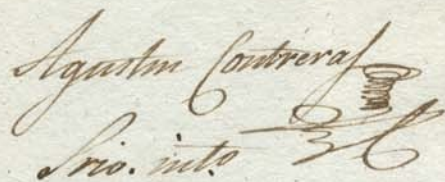 Agustin Contreras
Srio. into